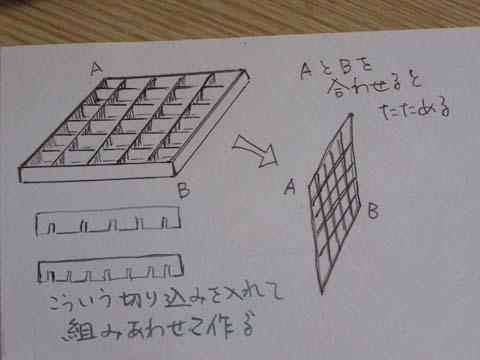 A
B
AとBを
合わせると
たためる
A
B
こういう切り込みを入れて
組みあわせて作る